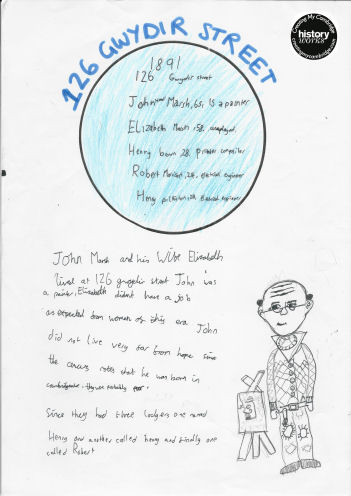 126 GWYDIR STREET
Creating My Cambridge
history
WORKS
creatingmycambridge.com
1891
126 Gwydir street
John Marsh, 65, is a painter
Elizabeth Marsh, 58, unemployed
Henry 28, printer compositor
Robert 24, electrical engineer
Henry electrical engineer
John Marsh and his Wife Elizabeth
lived at 126 gwydir street John was
a painter, Elizabeth didn't have a job
as expected from women of this era John
did not live very far from home since
the census notes that he was born in
they were probably
Since they had three lodgers one named
Henry and another called henry and finally one
called Robert